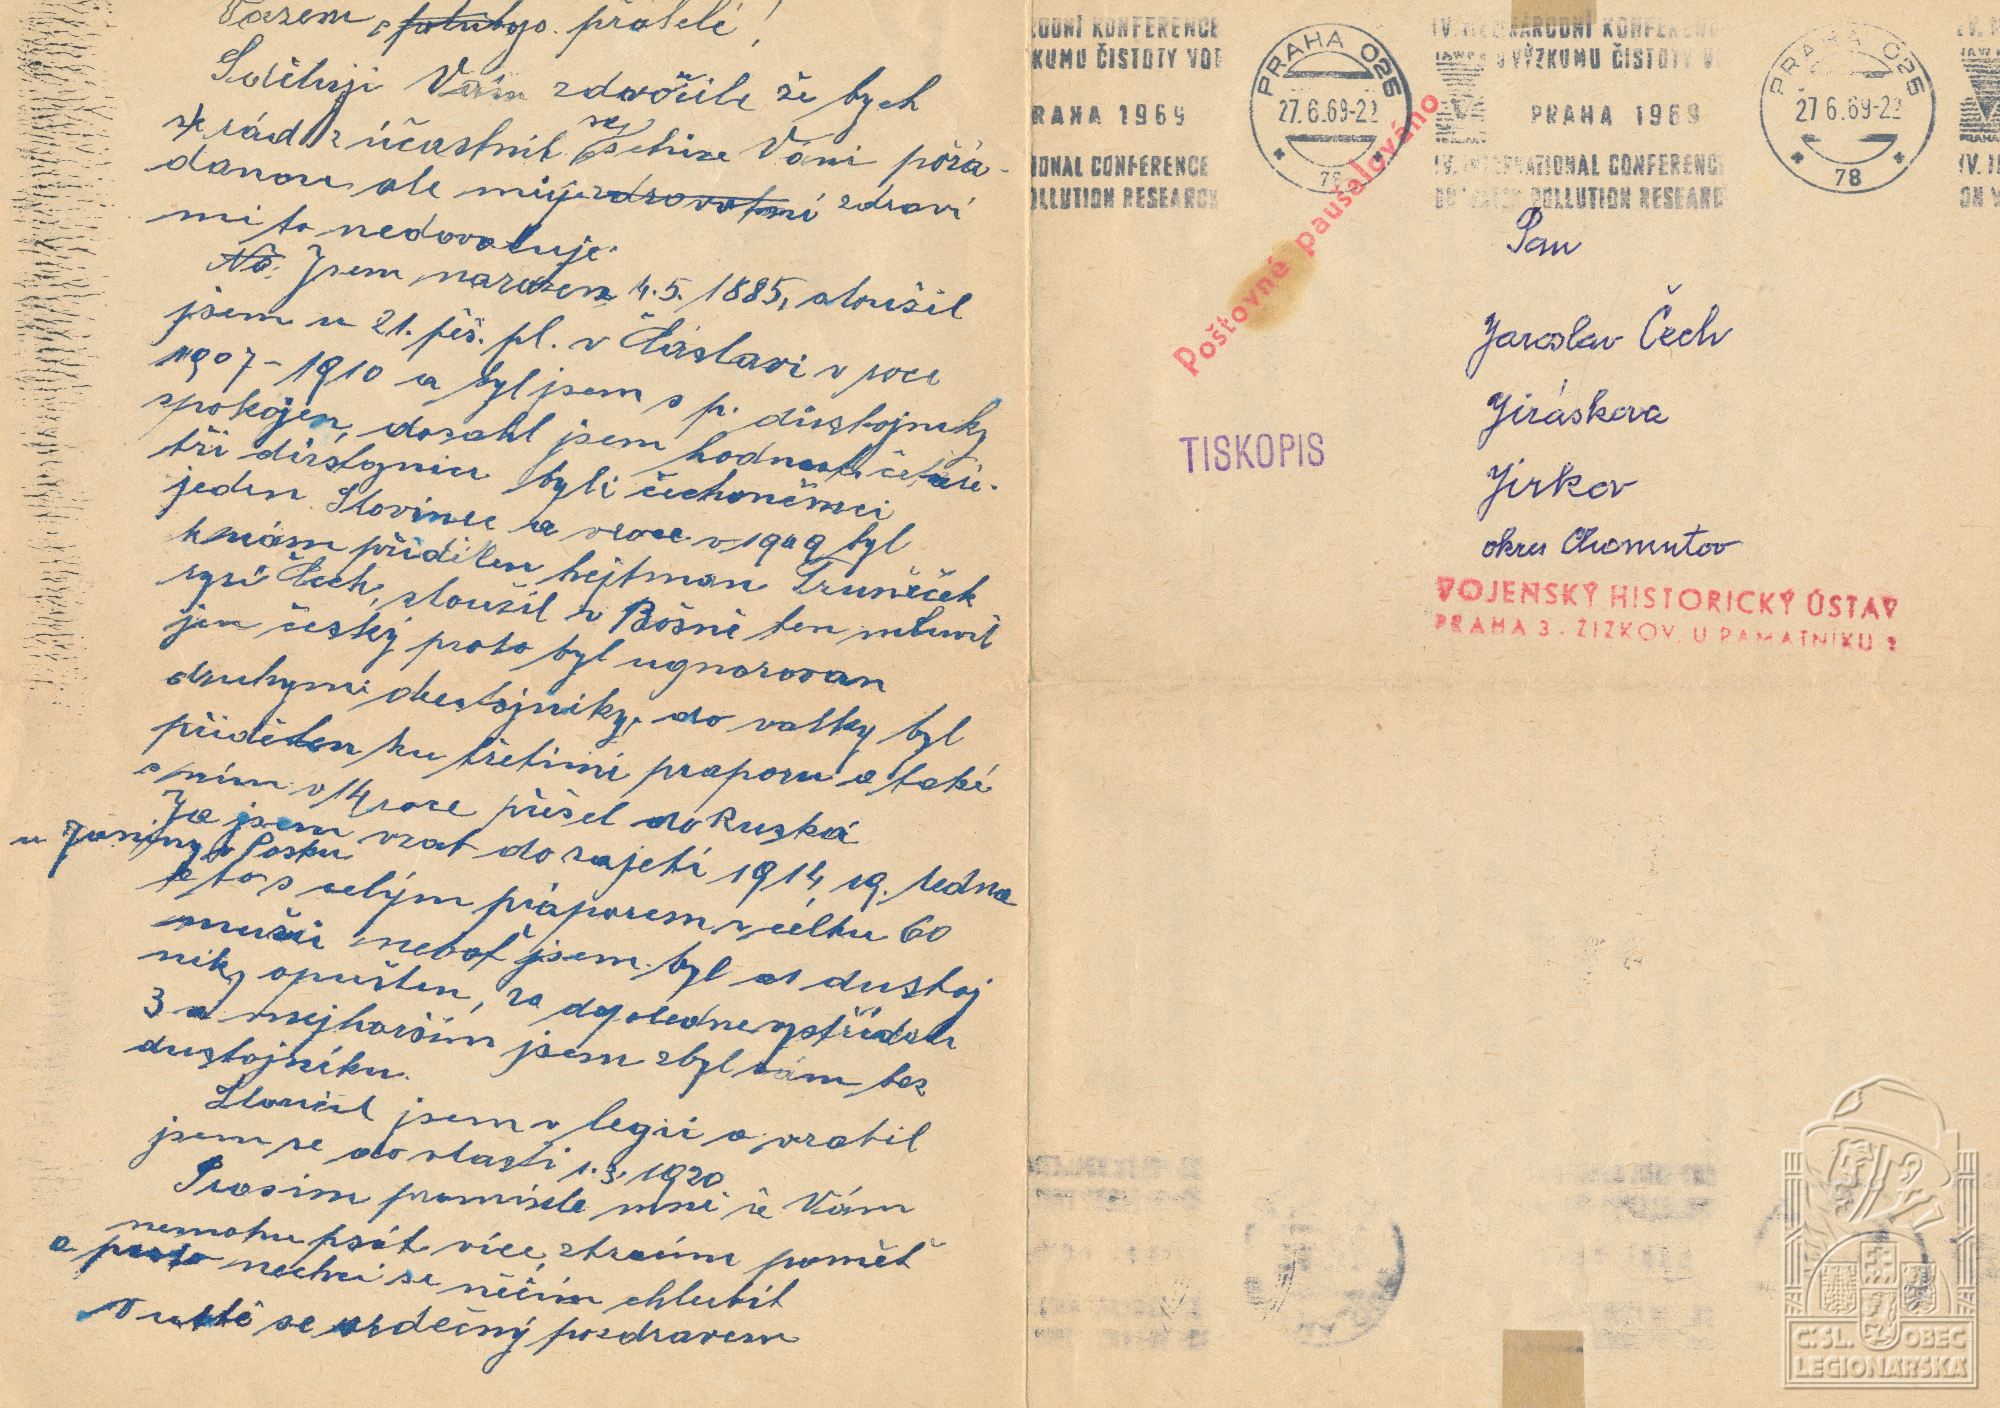 Vážení přátelé!
Sděluji Vám zdvořile že bych
rád zúčastnil se schůze Vámi pořá-
danou, ale moje zdravotní zdraví
mi to nedovoluje.
No: Jsem narozen 4.5. 1885, sloužil
jsem u 21. pěš. pl. v Čáslavi v roce
1907-1910 a byl jsem s p. důstojniky
spokojen, dosahl jsem hodnosti četaře.
tři byli čechoněmci
jeden Slovinec a v roce v 1909 byl
k nám přidělen hejtman Truněček
ryzí Čech, sloužil v Bosně ten mluvil
jen český proto byl ugnorovan
druhymi dustojniky, do valky byl
přidělen ku třetimi praporu a také
s ním v 14 roce přišel do Ruska
Ja jsem vzat do zajetí 1914 19. ledna
u v Polsku
a to s celým práporem v celku 60
mužů neboť jsem byl od dustoj
niky opuštěn, za dopoledne vystřídali
3 a nejhorším jsem zbyl sám bez
dustojníku.
Sloužil jsem v legii a vratil
jsem se do vlasti 1.3. 1920
Prosim promiňte mně že Vám
nemohu psát více, ztracím paměť
a proto nechci se něčím chlubit
V uctě se srdečný pozdravem
RODNÍ KONFERENCE
ZKUMU ČISTOTY VOD
PRAHA 1969
IONAL CONFERENCE
OLLUTION RESEARCH
PRAHA 025
27.6.69-22
78
IV. MEZINÁRODNÍ KONFERENCE
O VÝZKUMU ČISTOTY V
PRAHA 1969
IV. INTERNATIONAL CONFERENCE
ON WATER POLLUTION RESEARC
PRAHA 025
27.6.69-22
78
IV. M
PRAHA
IV. I
ON W
Poštovné paušalováno
TISKOPIS
Pan
Jaroslav Čech
Jiráskova
Jirkov
okres Chomutov
VOJENSKÝ HISTORICKÝ ÚSTAV
PRAHA 3 - ŽIŽKOV, U PAMÁTNÍKU 2
Č.SL. OBEC
LEGIONÁŘSKÁ